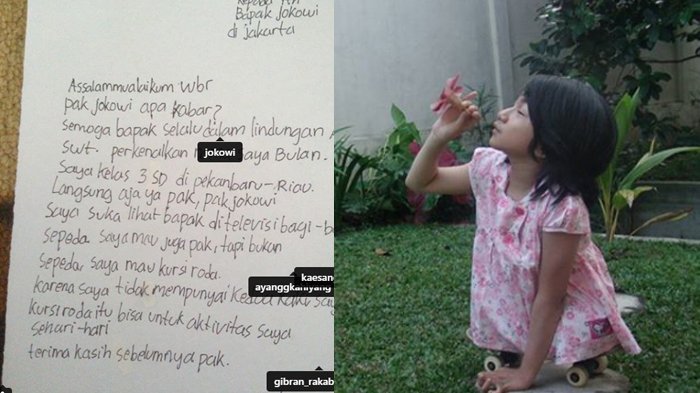 Bapak Jokowi
di jakarta
Assalammualaikum wbr
pak jokowi apa kabar?
Semoga bapak selalu dalam lindungan
swt. perkenalkan saya Bulan.
jokowi
Saya kelas 3 SD di pekanbaru-Riau.
Langsung aja ya pak, pak jokowi
Saya suka lihat bapak di televisi bagi-b
sepeda. saya mau juga pak, tapi bukan
sepeda. saya mau kursi roda.
kaesang
ayanggkahiyang
karena saya tidak mempunyai kedua kaki
kursi roda itu bisa untuk aktivitas saya
sehari-hari
terima kasih sebelumnya pak.
gibran_rakab